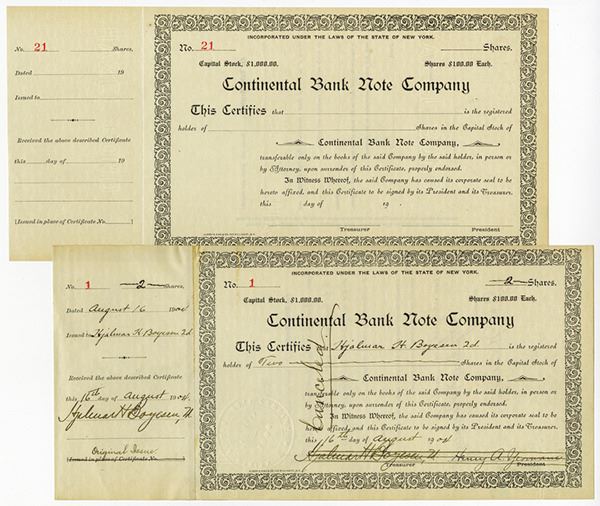 No. 21 Shares,
Dated 19
Issued to
Received the above described Certificate
this day of 19
[Issued in place of Certificate No. ]
INCORPORATED UNDER THE LAWS OF THE STATE OF NEW YORK.
No. 21 Shares.
Capital Stock, $1,000.00. Shares $100.00 Each.
Continental Bank Note Company
This Certifies that is the registered
holder of Shares in the Capital Stock of
Continental Bank Note Company,
transferable only on the books of the said Company by the said holder, in person or
by Attorney, upon surrender of this Certificate, properly endorsed.
In Witness Whereof, the said Company has caused its corporate seal to be
hereto affixed, and this Certificate to be signed by its President and its Treasurer,
this day of 19 .
Treasurer President
No. 1 2 Shares,
Dated August 16 1904
Issued to Hjalmar H. Boyesen 2d.
Received the above described Certificate
this 16th day of August 1904
Hjalmar H Boyesen, II
Original Issue
[Issued in place of Certificate No. ]
INCORPORATED UNDER THE LAWS OF THE STATE OF NEW YORK.
No. 1 2 Shares.
Capital Stock, $1,000.00. Shares $100.00 Each.
Continental Bank Note Company
This Certifies Hjalmar H. Boyesen 2d. is the registered
holder of Two Shares in the Capital Stock of
Continental Bank Note Company,
transferable only on the books of the said Company by the said holder, in person or
by Attorney, upon surrender of this Certificate, properly endorsed.
In Witness Whereof, the said Company has caused its corporate seal to be
hereto affixed, and this Certificate to be signed by its President and its Treasurer,
this 16th day of August 1904
Hjalmar H Boyesen, II Henry A.
Treasurer President
Cancelled